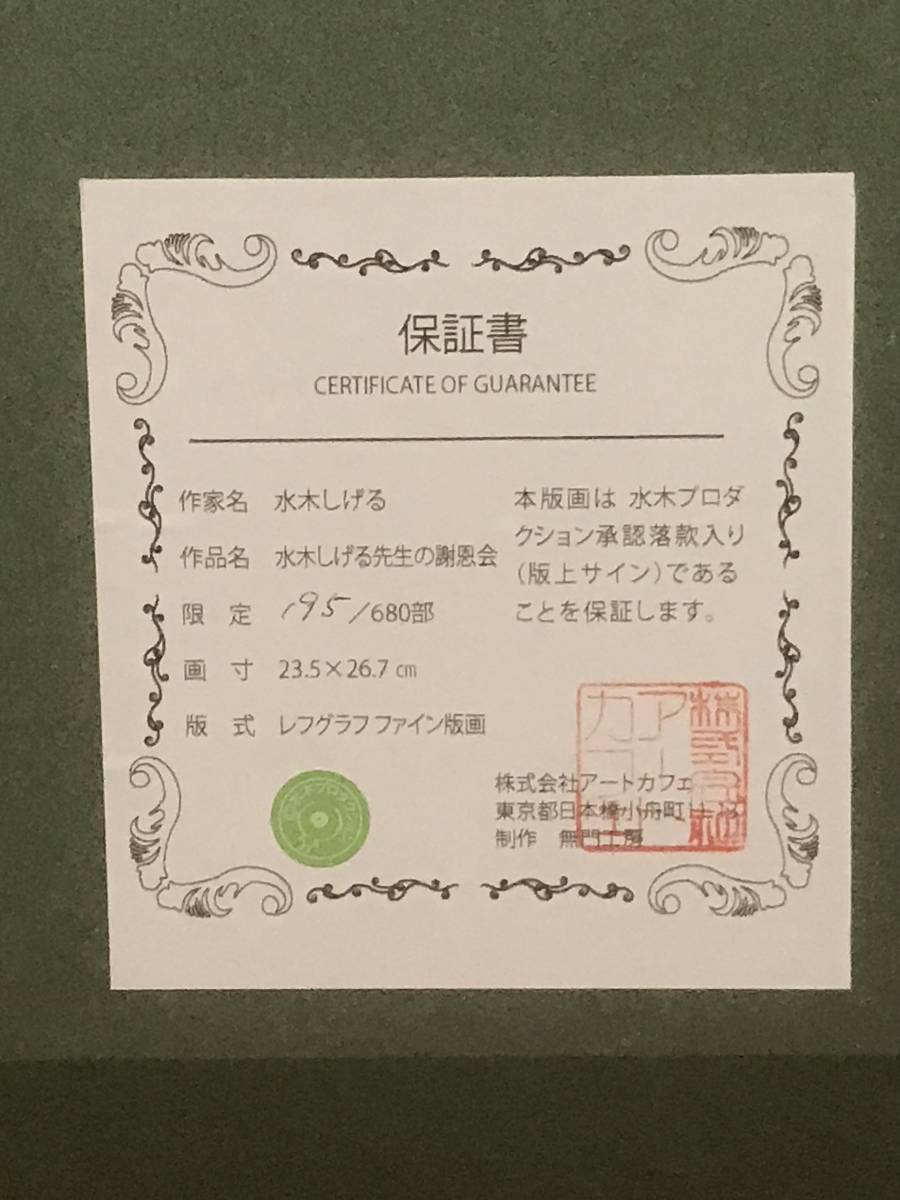 保証書
CERTIFICATE OF GUARANTEE
作家名 水木しげる
作品名 水木しげる先生の謝恩会
限 定 195/680部
画 寸 23.5×26.7 ㎝
版 式 レフグラフ ファイン版画
本版画は 水木プロダ
クション承認落款入り
(版上サイン)である
ことを保証します。
株式会社アートカフェ
東京都日本橋小舟町
制作 無門工房